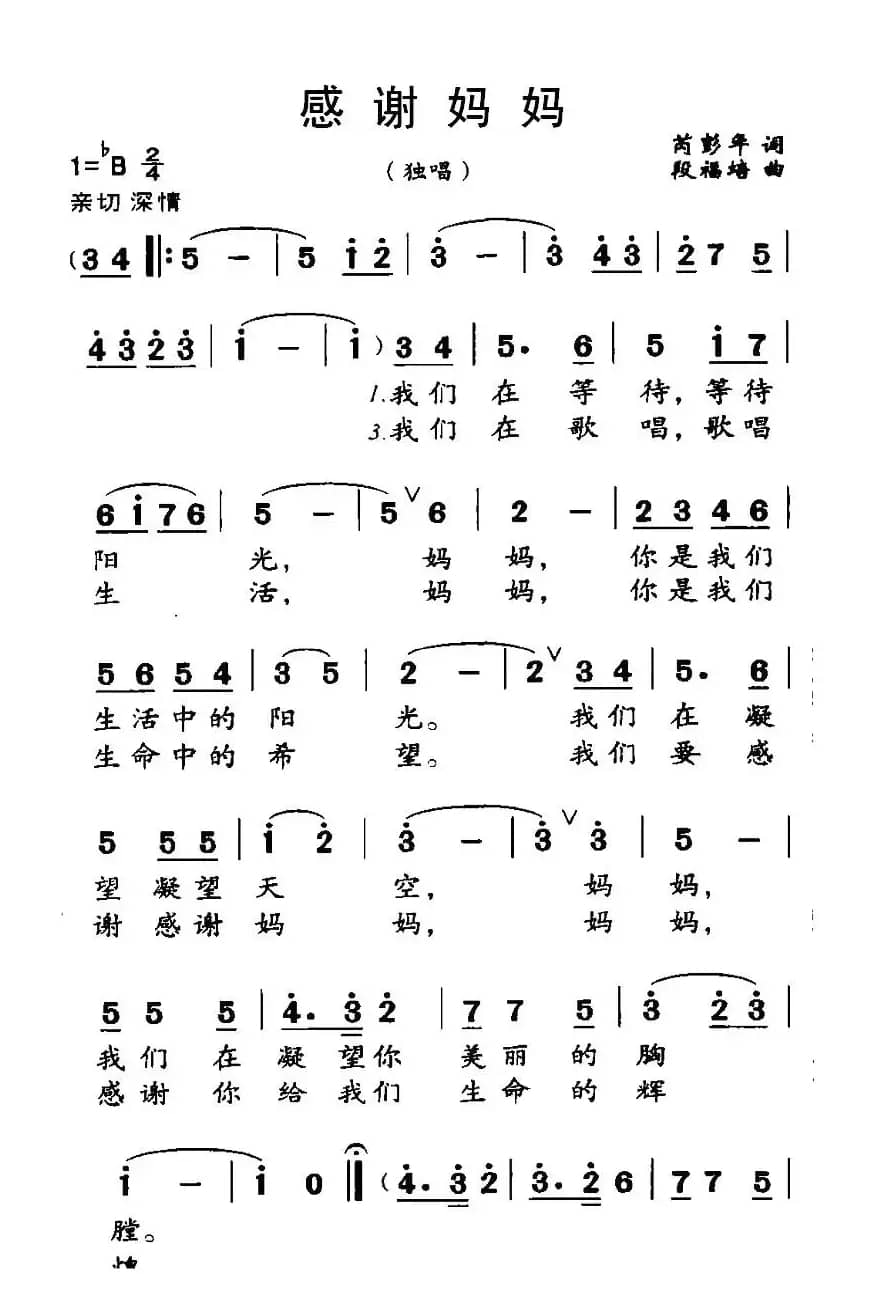 感谢妈妈
芮彭年 词
1=♭B 2/4 （独唱） 段福培 曲
亲切 深情
(3 4 ‖: 5 - | 5 i̇ 2̇ | 3̇ - | 3̇ 4̇ 3̇ | 2̇ 7 5 |
4̇ 3̇ 2̇ 3̇ | i̇ - | i̇ ) 3 4 | 5. 6 | 5 i̇ 7 |
1.我们 在 等 待，等待
3.我们 在 歌 唱，歌唱
6 i̇ 7 6 | 5 - | 5 ∨ 6 | 2 - | 2 3 4 6 |
阳 光， 妈 妈， 你是我们
生 活， 妈 妈， 你是我们
5 6 5 4 | 3 5 | 2 - | 2 ∨ 3 4 | 5. 6 |
生活中的 阳 光。 我们 在 凝
生命中的 希 望。 我们 要 感
5 5 5 | i̇ 2̇ | 3̇ - | 3̇ ∨ 3̇ | 5 - |
望 凝望 天 空， 妈 妈，
谢 感谢 妈 妈， 妈 妈，
5 5 5 | 4̇. 3̇ 2̇ | 7 7 5 | 3̇ 2̇ 3̇ |
我们 在 凝 望你 美丽 的 胸
感谢 你 给 我们 生命 的 辉
i̇ - | i̇ 0 ‖ ( 4̇. 3̇ 2̇ | 3̇. 2̇ 6 | 7 7 5 |
膛。